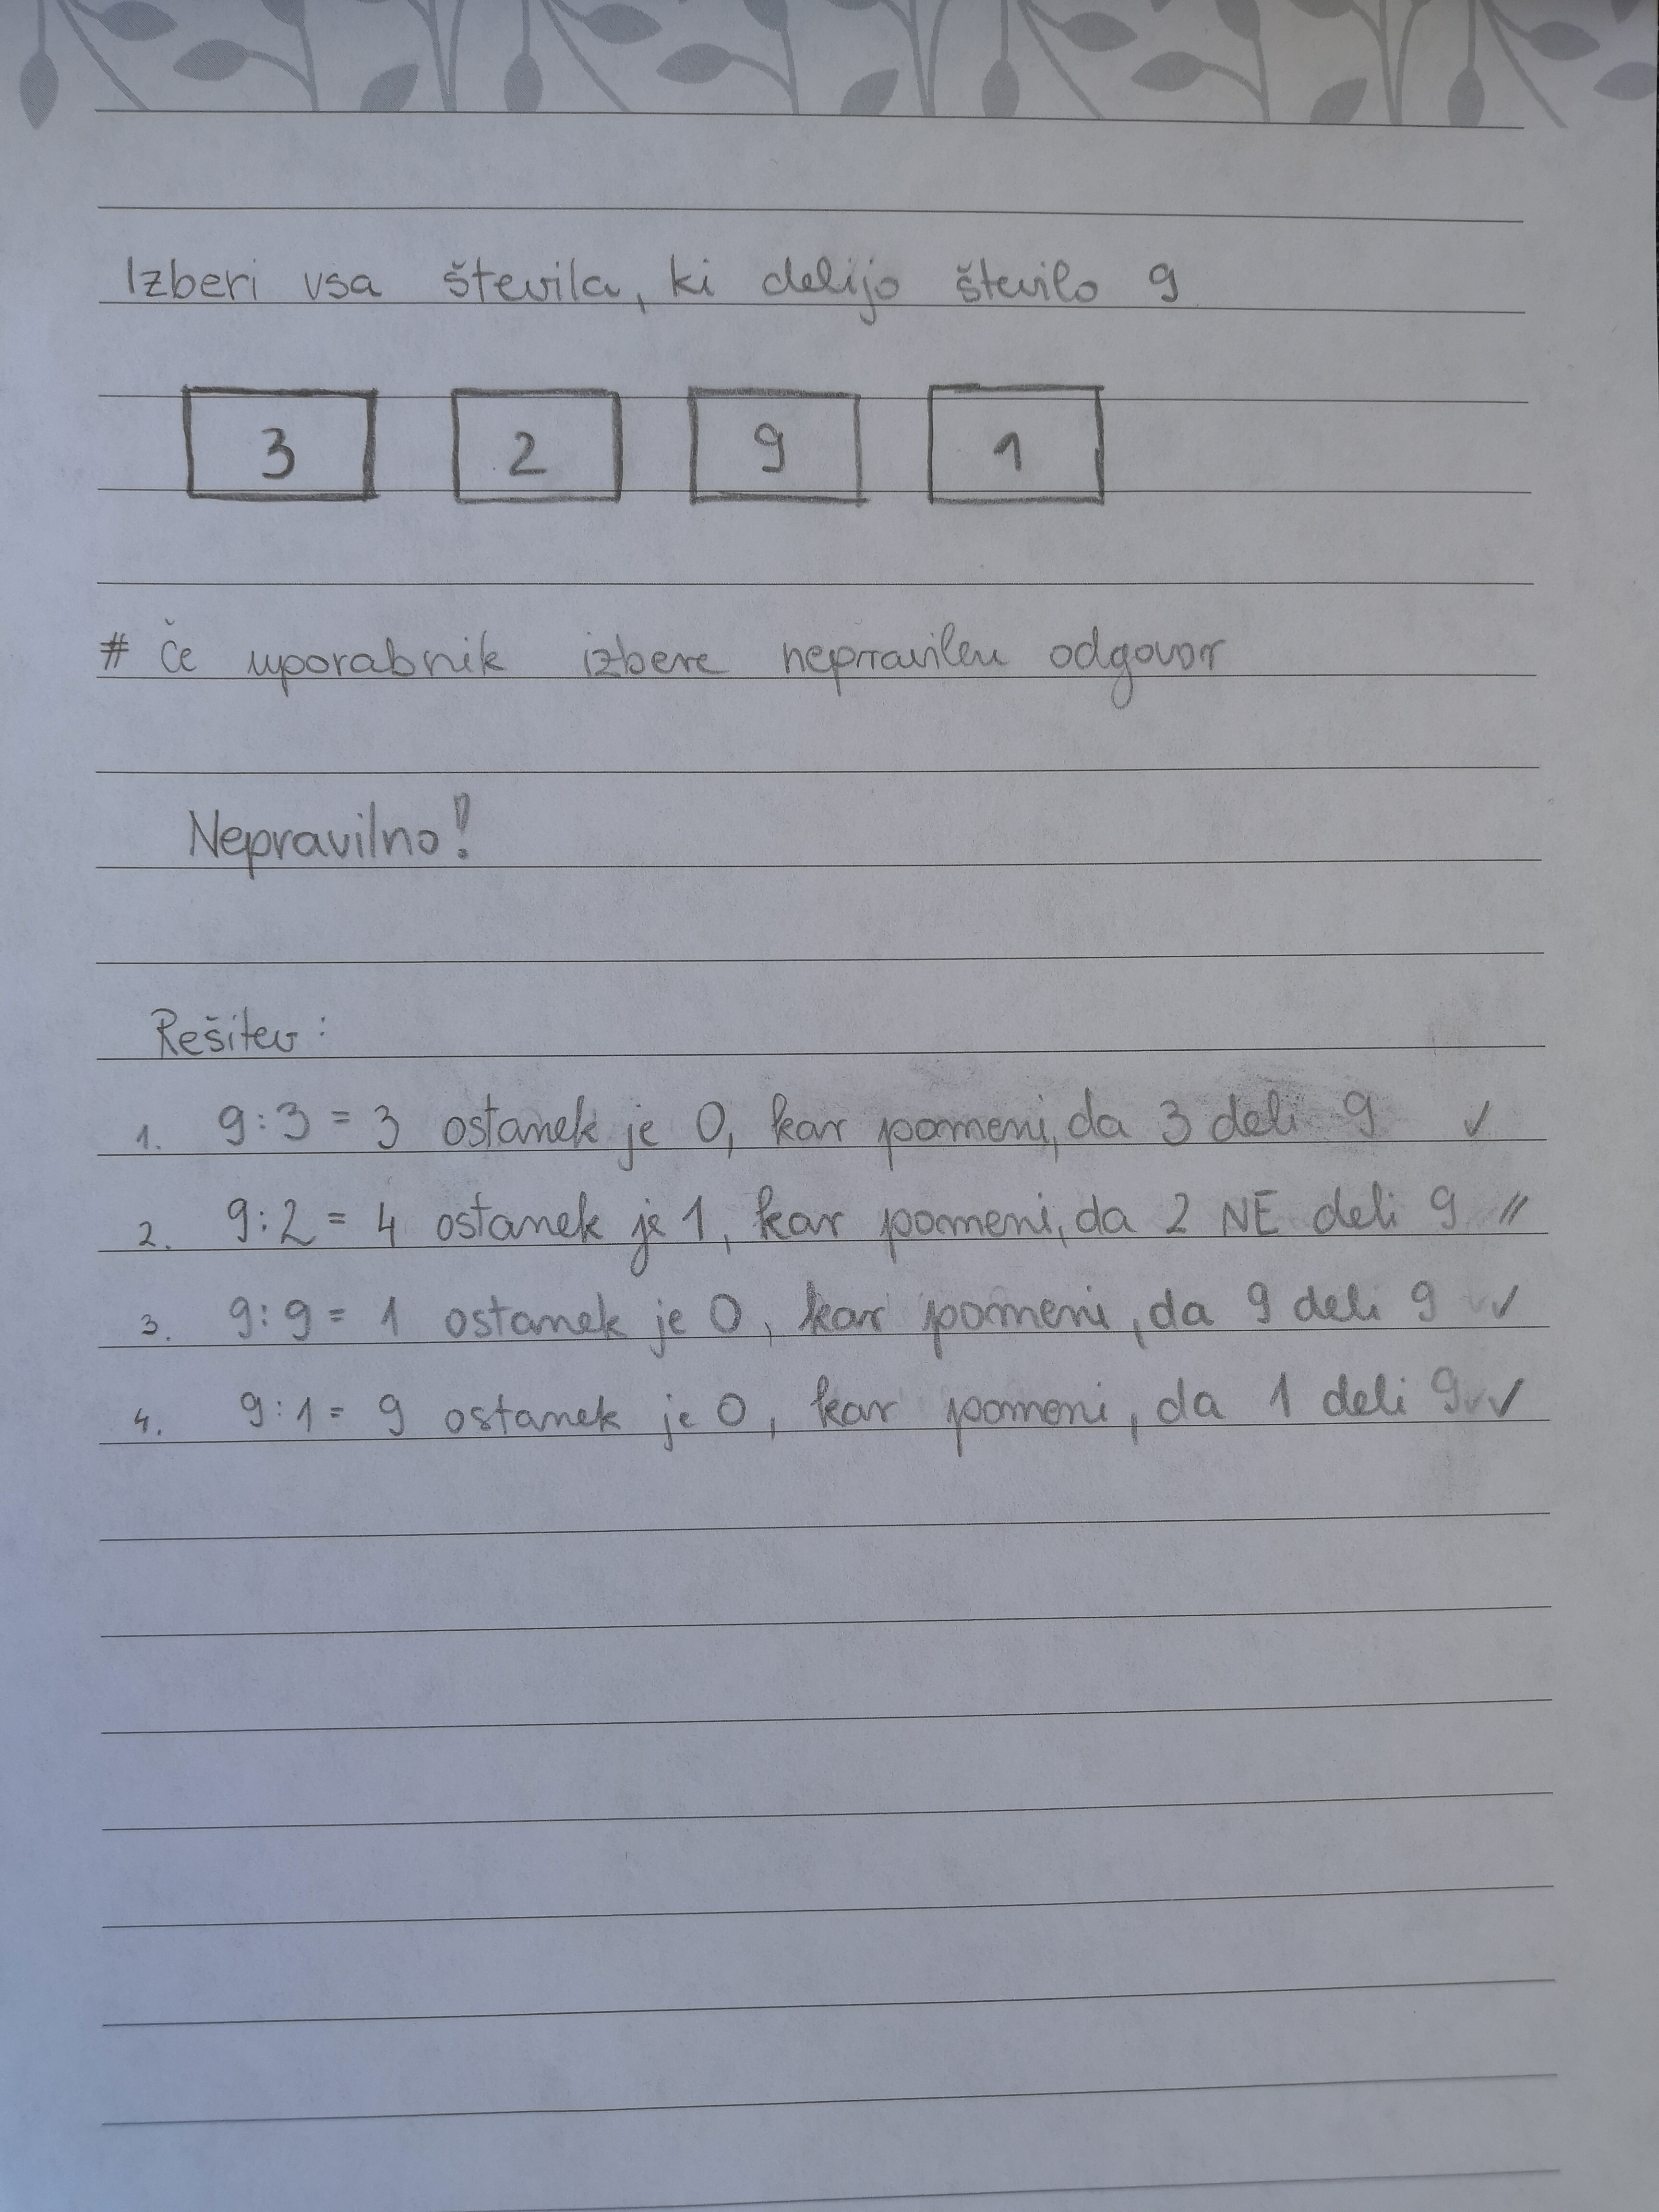 Izberi vsa števila, ki delijo število 9
3 2 9 1
# Če uporabnik izbere nepravilen odgovor
Nepravilno!
Rešitev:
1. 9:3 = 3 ostanek je 0, kar pomeni, da 3 deli 9 ✓
2. 9:2 = 4 ostanek je 1, kar pomeni, da 2 NE deli 9 //
3. 9:9 = 1 ostanek je 0, kar pomeni, da 9 deli 9 ✓
4. 9:1 = 9 ostanek je 0, kar pomeni, da 1 deli 9 ✓